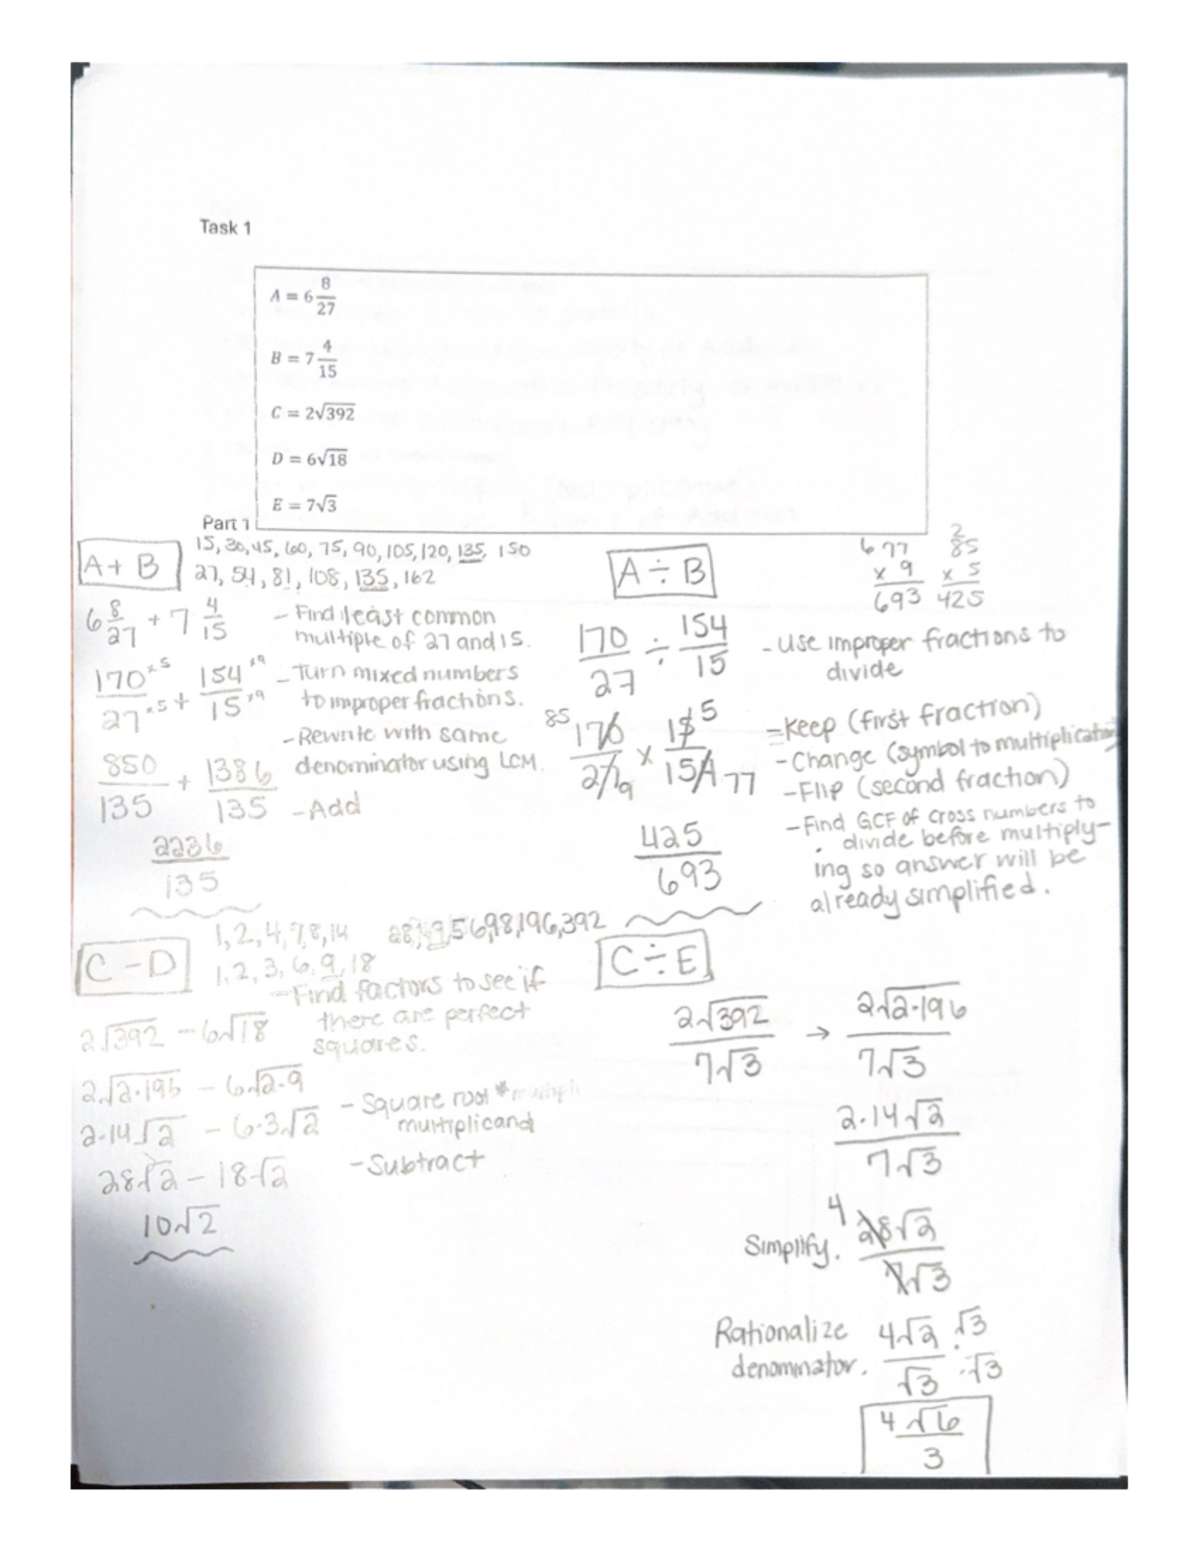 Task 1
A = 6 8/27
B = 7 4/15
C = 2√392
D = 6√18
E = 7√3
Part 1
A + B
15, 30, 45, 60, 75, 90, 105, 120, 135, 150
27, 54, 81, 108, 135, 162
6 8/27 + 7 4/15
- Find least common
multiple of 27 and 15.
170 ×5/27 ×5 + 154 ×9/15 ×9
- Turn mixed numbers
to improper fractions.
- Rewrite with same
denominator using LCM.
850/135 + 1386/135
- Add
2236/135
A ÷ B
6 77
× 9
693
2
85
× 5
425
170/27 ÷ 154/15
- Use improper fractions to
divide
85 170/27 9 × 15 5/154 77
= Keep (first fraction)
- Change (symbol to multiplication
- Flip (second fraction)
- Find GCF of cross numbers to
divide before multiply-
ing so answer will be
already simplified.
425/693
C - D
1, 2, 4, 7, 8, 14 28, 49, 56, 98, 196, 392
1, 2, 3, 6, 9, 18
- Find factors to see if
there are perfect
squares.
2√392 - 6√18
2√2·196 - 6√2·9
2·14√2 - 6·3√2
- Square root *
multiplicand
28√2 - 18√2
- Subtract
10√2
C ÷ E
2√392/7√3 → 2√2·196/7√3
2·14√2/7√3
Simplify. 4 28√2/7√3
Rationalize
denominator. 4√2/√3 · √3/√3
4√6/3